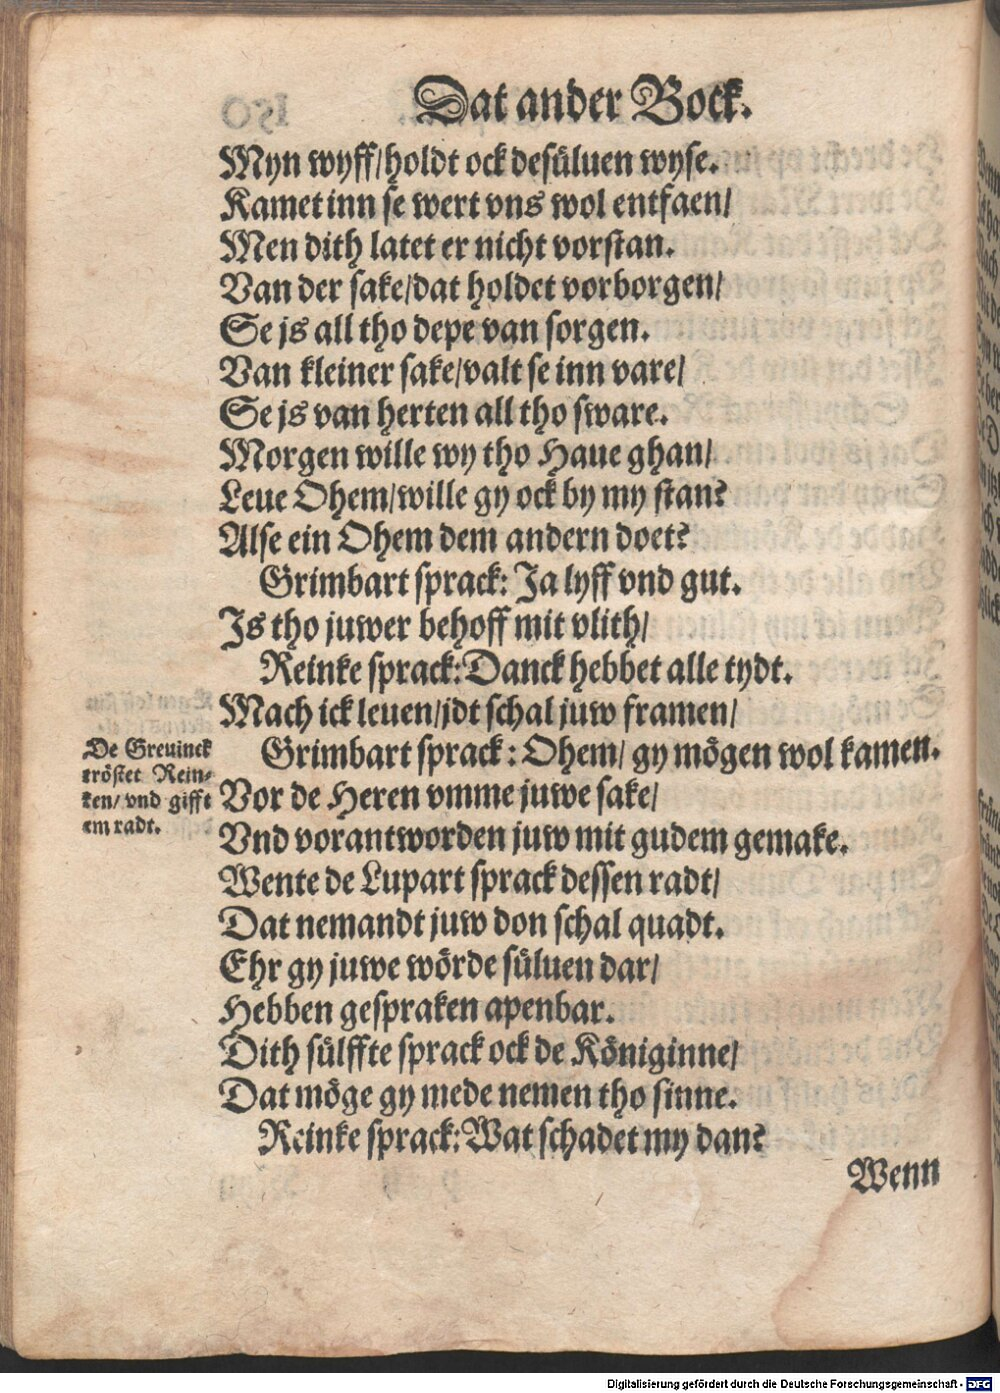 Dat ander Bock.
Myn wyff/holdt ock desüluen wyse.
Kamet inn se wert vns wol entfaen/
Men dith latet er nicht vorstan.
Van der sake/dat holdet vorborgen/
Se js all tho depe van sorgen.
Van kleiner sake/valt se inn vare/
Se js van herten all tho sware.
Morgen wille wy tho Haue ghan/
Leue Ohem/wille gy ock by my stan?
Alse ein Ohem dem andern doet?
Grimbart sprack: Ja lyff vnd gut.
Is tho juwer behoff mit vlith/
Reinke sprack: Danck hebbet alle tydt.
Mach ick leuen/jdt schal juw framen/
Grimbart sprack: Ohem/ gy mögen wol kamen.
De Greuinck
tröstet Rein-
ken/ vnd gifft
em radt.
Vor de Heren vmme juwe sake/
Vnd vorantworden juw mit gudem gemake.
Wente de Lupart sprack dessen radt/
Dat nemandt juw don schal quadt.
Ehr gy juwe wörde süluen dar/
Hebben gespraken apenbar.
Dith sülffte sprack ock de Königinne/
Dat möge gy mede nemen tho sinne.
Reinke sprack: Wat schadet my dan?
Wenn
Digitalisierung gefördert durch die Deutsche Forschungsgemeinschaft - DFG